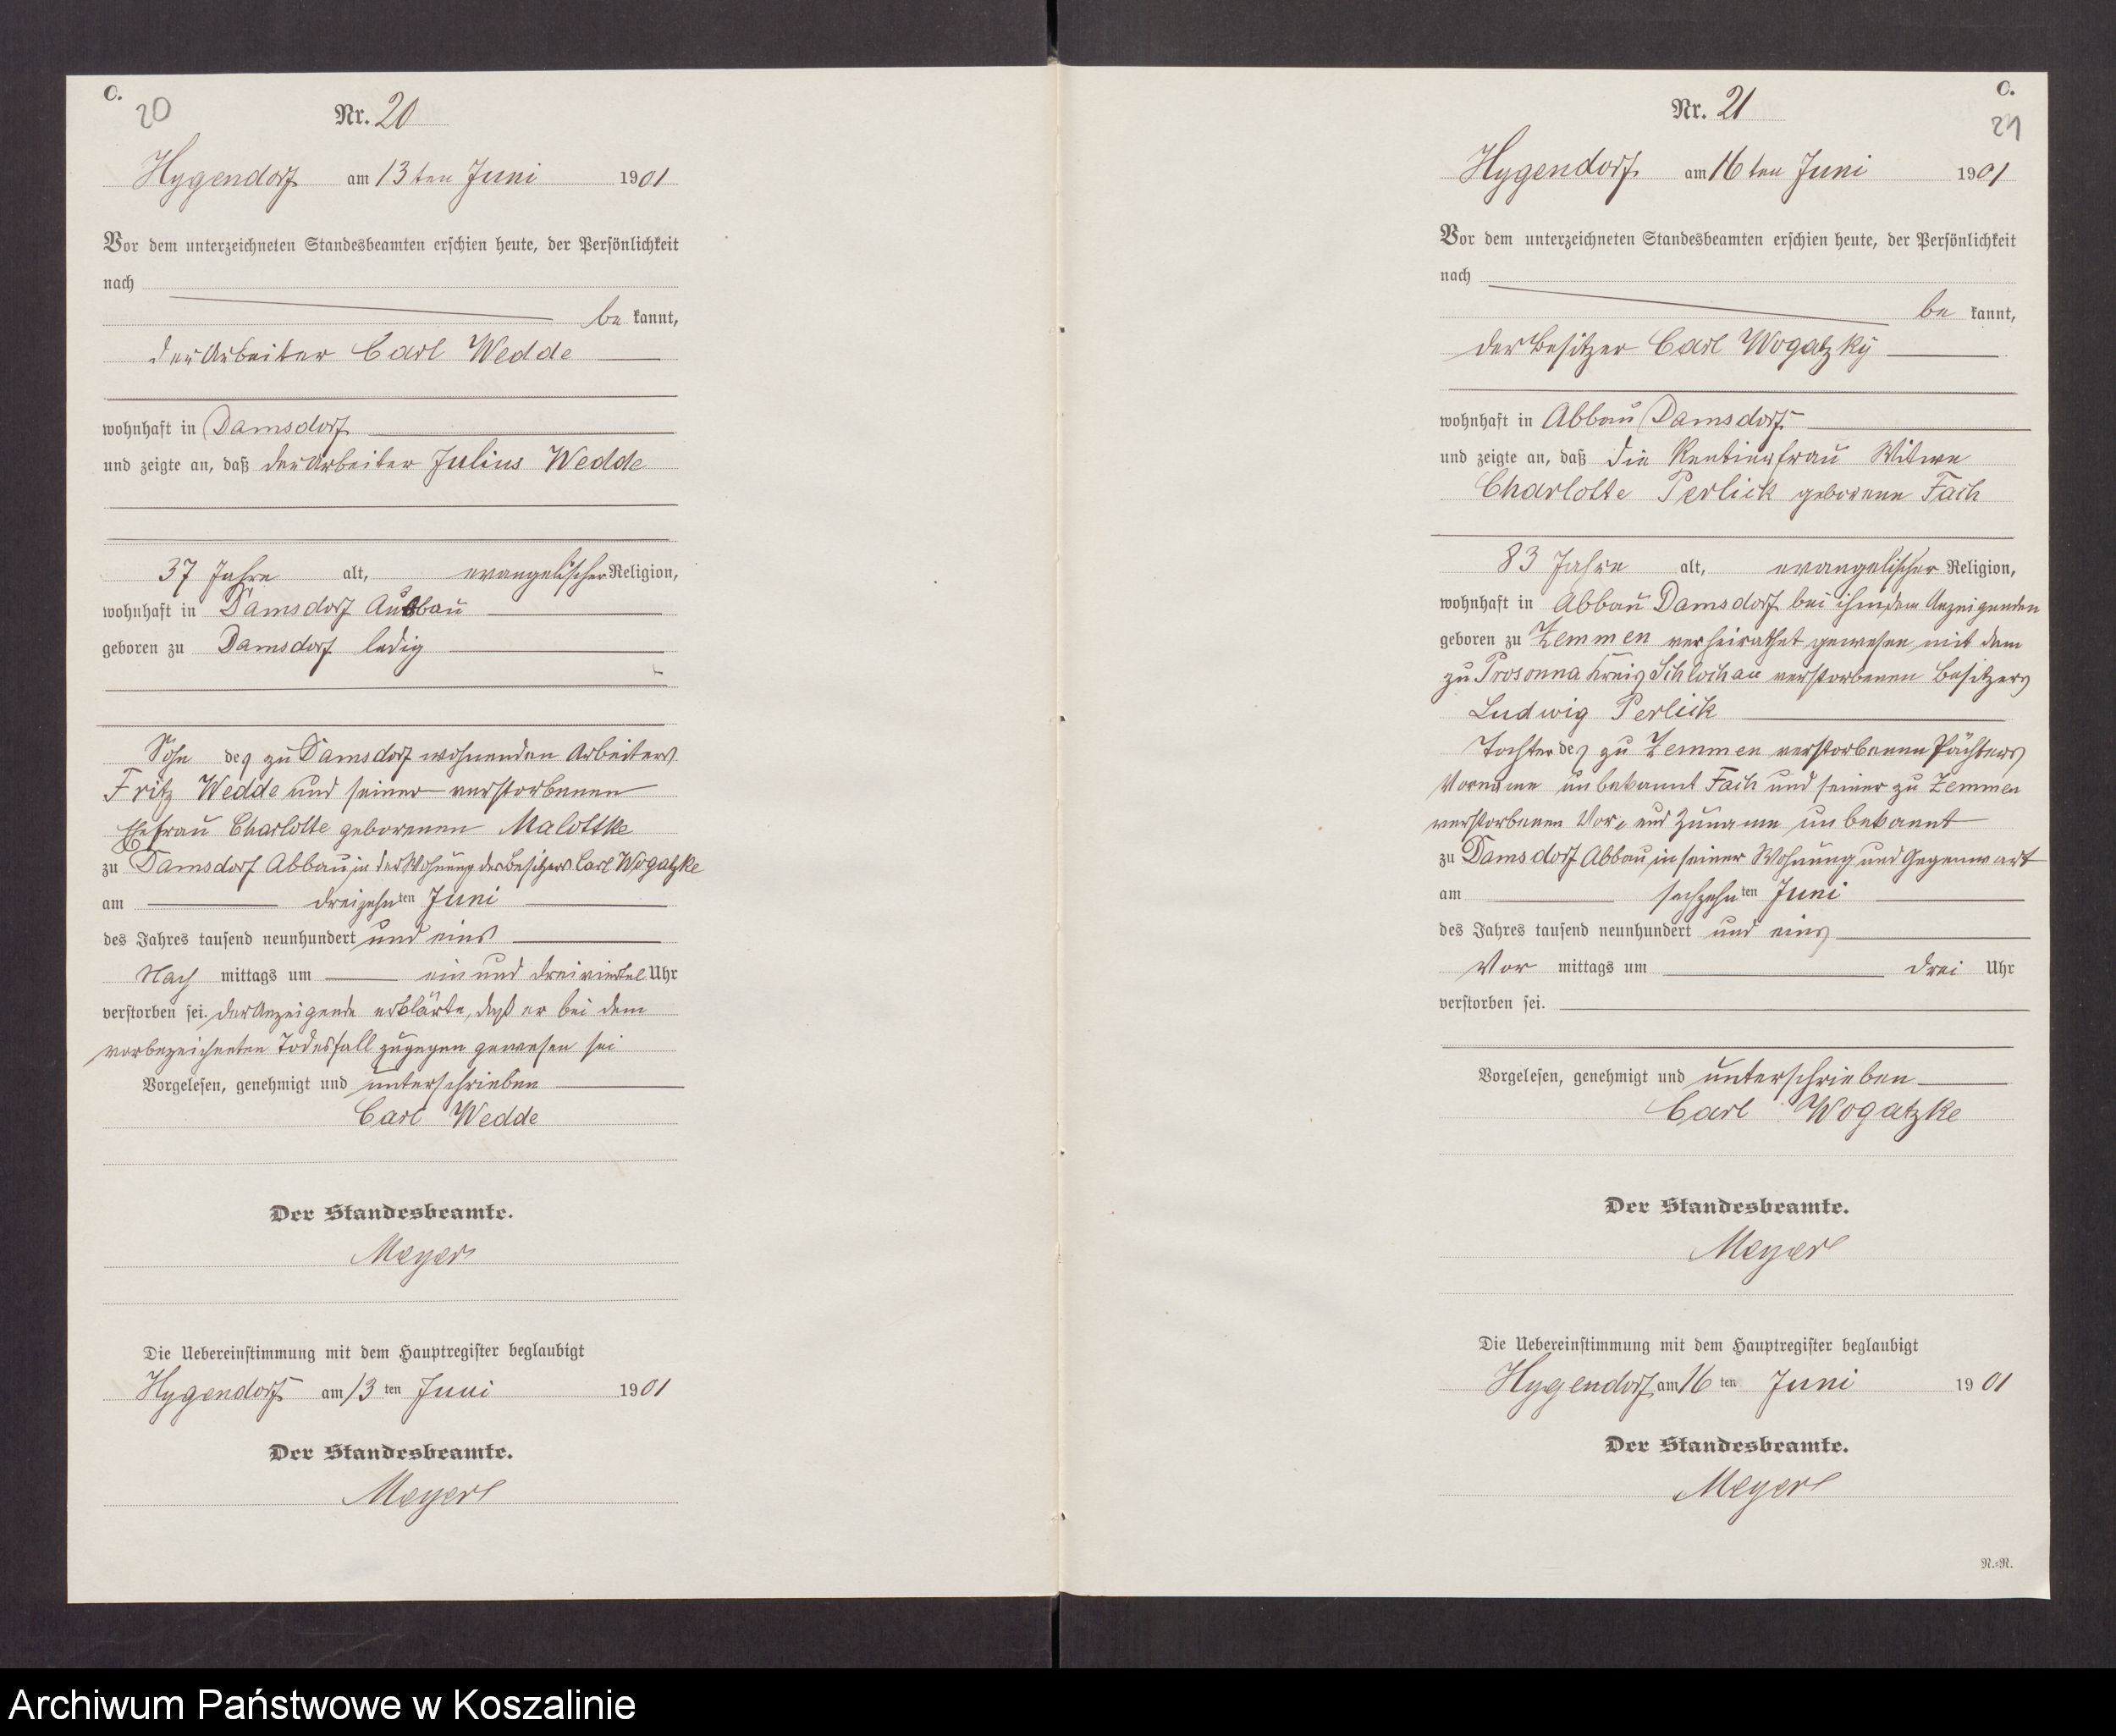 C.
20
Nr. 20
Hygendorf am 13ten Juni 1901
Vor dem unterzeichneten Standesbeamten erschien heute, der Persönlichkeit
nach
be kannt,
der Arbeiter Carl Wedde
wohnhaft in Damsdorf
und zeigte an, daß der Arbeiter Julius Wedde
37 Jahre alt, evangelischer Religion,
wohnhaft in Damsdorf Ausbau
geboren zu Damsdorf ledig
Sohn des zu Damsdorf wohnenden Arbeiters
Fritz Wedde und seiner verstorbenen
Ehefrau Charlotte geborenen Malottke
zu Damsdorf Abbau, in der Wohnung des Besitzers Carl Wogatzke
am dreizehnten Juni
des Jahres tausend neunhundert und eins
Nach mittags um ein und dreiviertel Uhr
verstorben sei. Der Anzeigende erklärte, daß er bei dem
vorbezeichneten Todesfall zugegen gewesen sei
Vorgelesen, genehmigt und unterschrieben
Carl Wedde
Der Standesbeamte.
Meyer
Die Uebereinstimmung mit dem Hauptregister beglaubigt
Hygendorf am 13 ten Juni 1901
Der Standesbeamte.
Meyer
C.
21
Nr. 21
Hygendorf am 16 ten Juni 1901
Vor dem unterzeichneten Standesbeamten erschien heute, der Persönlichkeit
nach
be kannt,
der Besitzer Carl Wogatzky
wohnhaft in Abbau Damsdorf
und zeigte an, daß die Rentierfrau Witwe
Charlotte Perlick geborene Fach
83 Jahre alt, evangelischer Religion,
wohnhaft in Abbau Damsdorf bei ihm, dem Anzeigenden
geboren zu Zemmen verheirathet gewesen mit dem
zu Prosonna Kreis Schlochau verstorbenen Besitzers
Ludwig Perlick
Tochter des zu Zemmen verstorbenen Pächters
Vorname unbekannt Fach und seiner zu Zemmen
verstorbenen Vor- und Zuname unbekannt
zu Damsdorf Abbau, in seiner Wohnung und Gegenwart
am sechzehnten Juni
des Jahres tausend neunhundert und eins
Vor mittags um drei Uhr
verstorben sei.
Vorgelesen, genehmigt und unterschrieben
Carl Wogatzke
Der Standesbeamte.
Meyer
Die Uebereinstimmung mit dem Hauptregister beglaubigt
Hygendorf am 16 ten Juni 1901
Der Standesbeamte.
Meyer
N.=N.
Archiwum Państwowe w Koszalinie